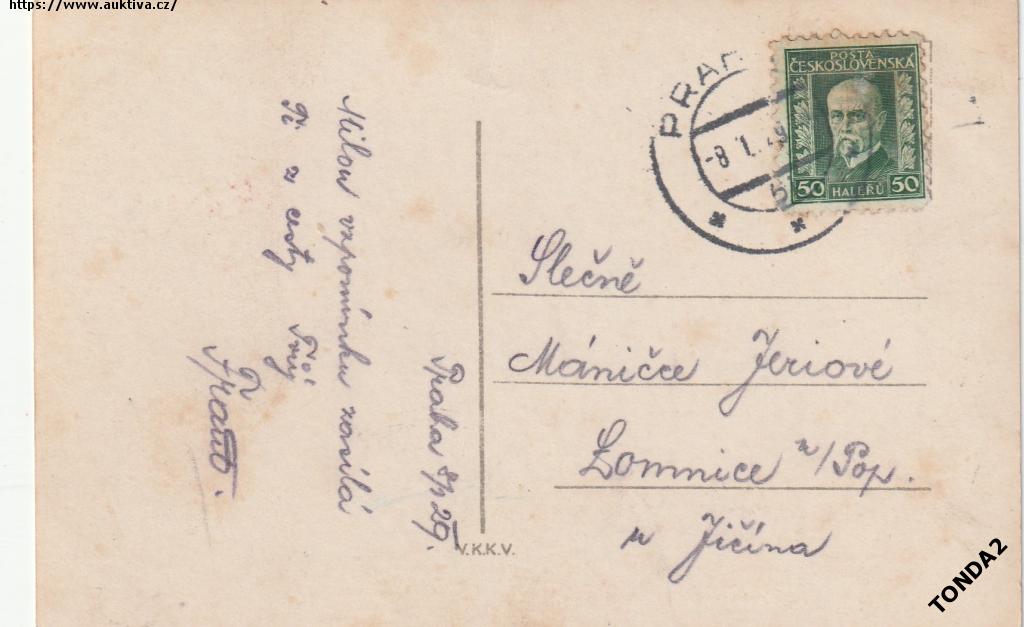 https://www.auktiva.cz/
POŠTA
ČESKOSLOVENSKÁ
50 HALÉŘŮ 50
PRAH
-8 1. 29
5
Slečně
Máničce Jeriové
Lomnice n/Pop.
u Jičína
Praha 8/1 29.
Milou vzpomínku zasílá
Ti z cesty Tvůj
V.K.K.V.
TONDA2